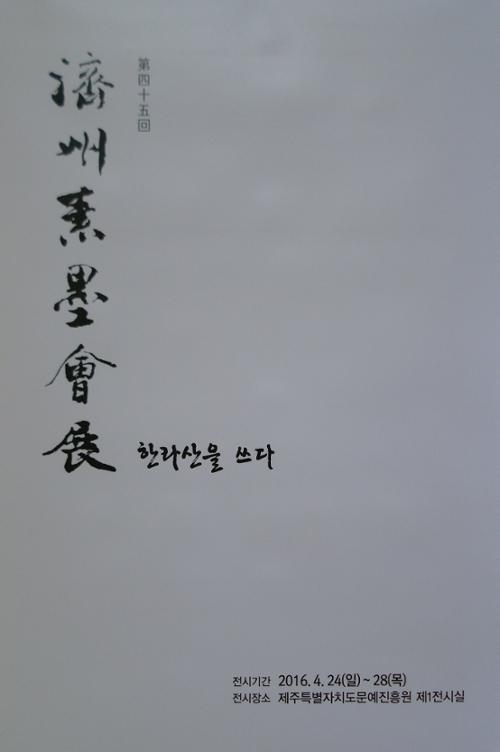 濟州素墨會展
第四十五回
한라산을 쓰다
전시기간 2016. 4. 24(일) ~ 28(목)
전시장소 제주특별자치도문예진흥원 제1전시실